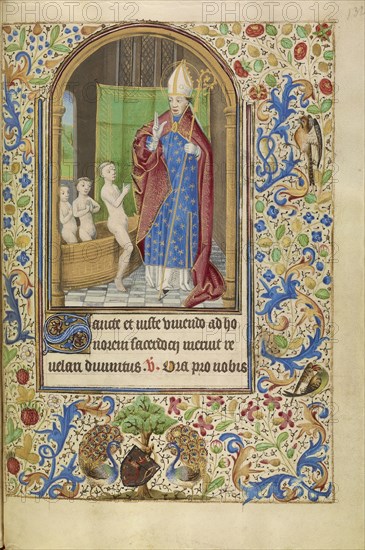 132
Sancte et iuste viuendo ad ho
norem sacerdocij meruit re
uelari diuinitus. V. Ora pro nobis